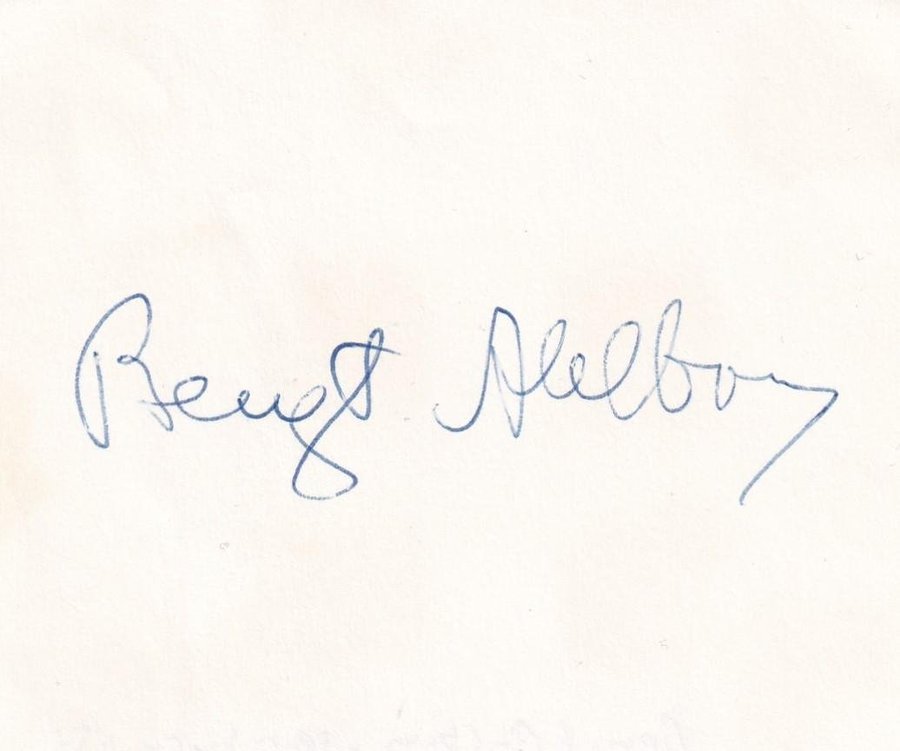 Bengt Ahlbom